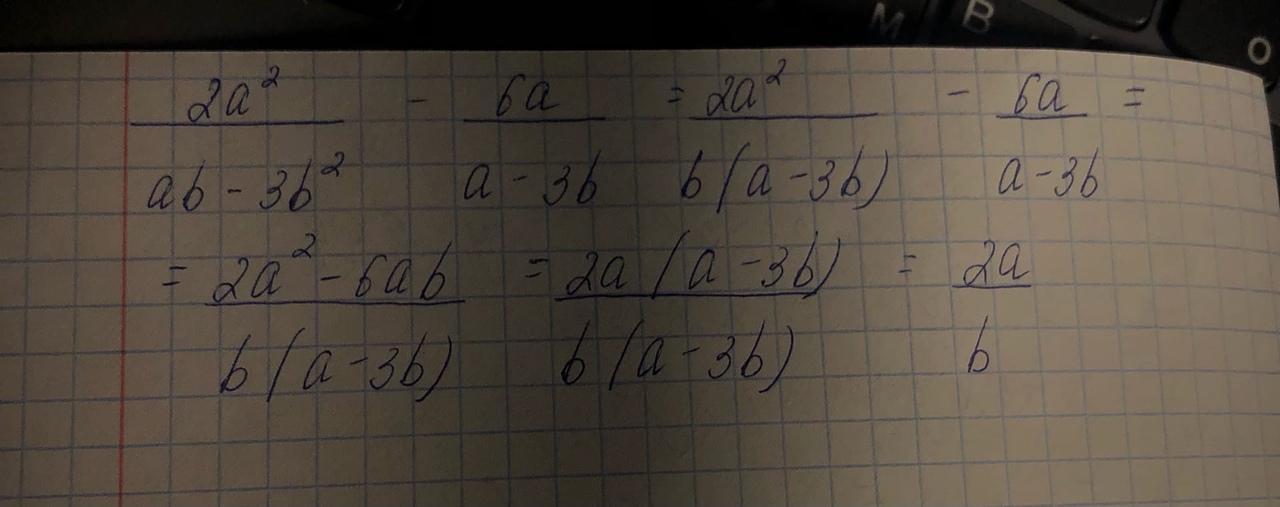 M B O
2a² / (ab - 3b²) - 6a / (a - 3b) = 2a² / (b(a - 3b)) - 6a / (a - 3b) =
= (2a² - 6ab) / (b(a - 3b)) = 2a(a - 3b) / (b(a - 3b)) = 2a / b